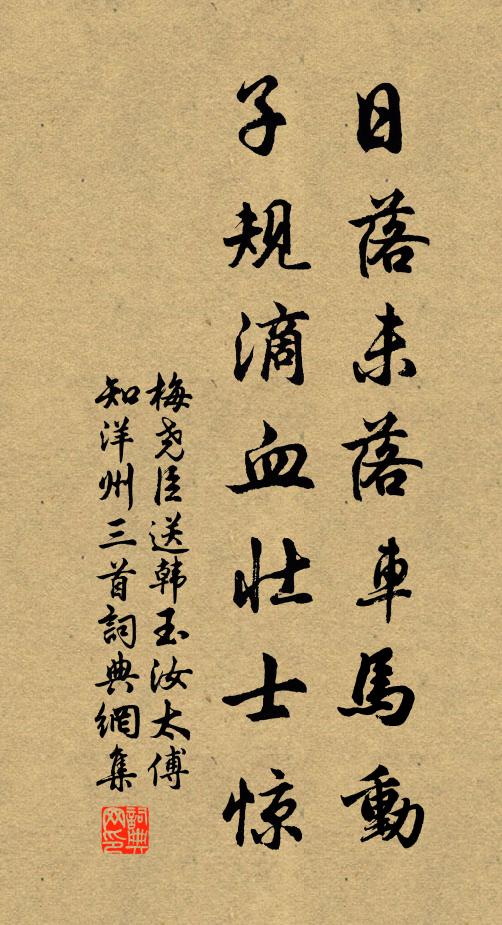 日落未落車馬動
子規滴血壮士惊
梅尧臣送韩玉汝太傅
知洋州三首詞典網集
詞典網印